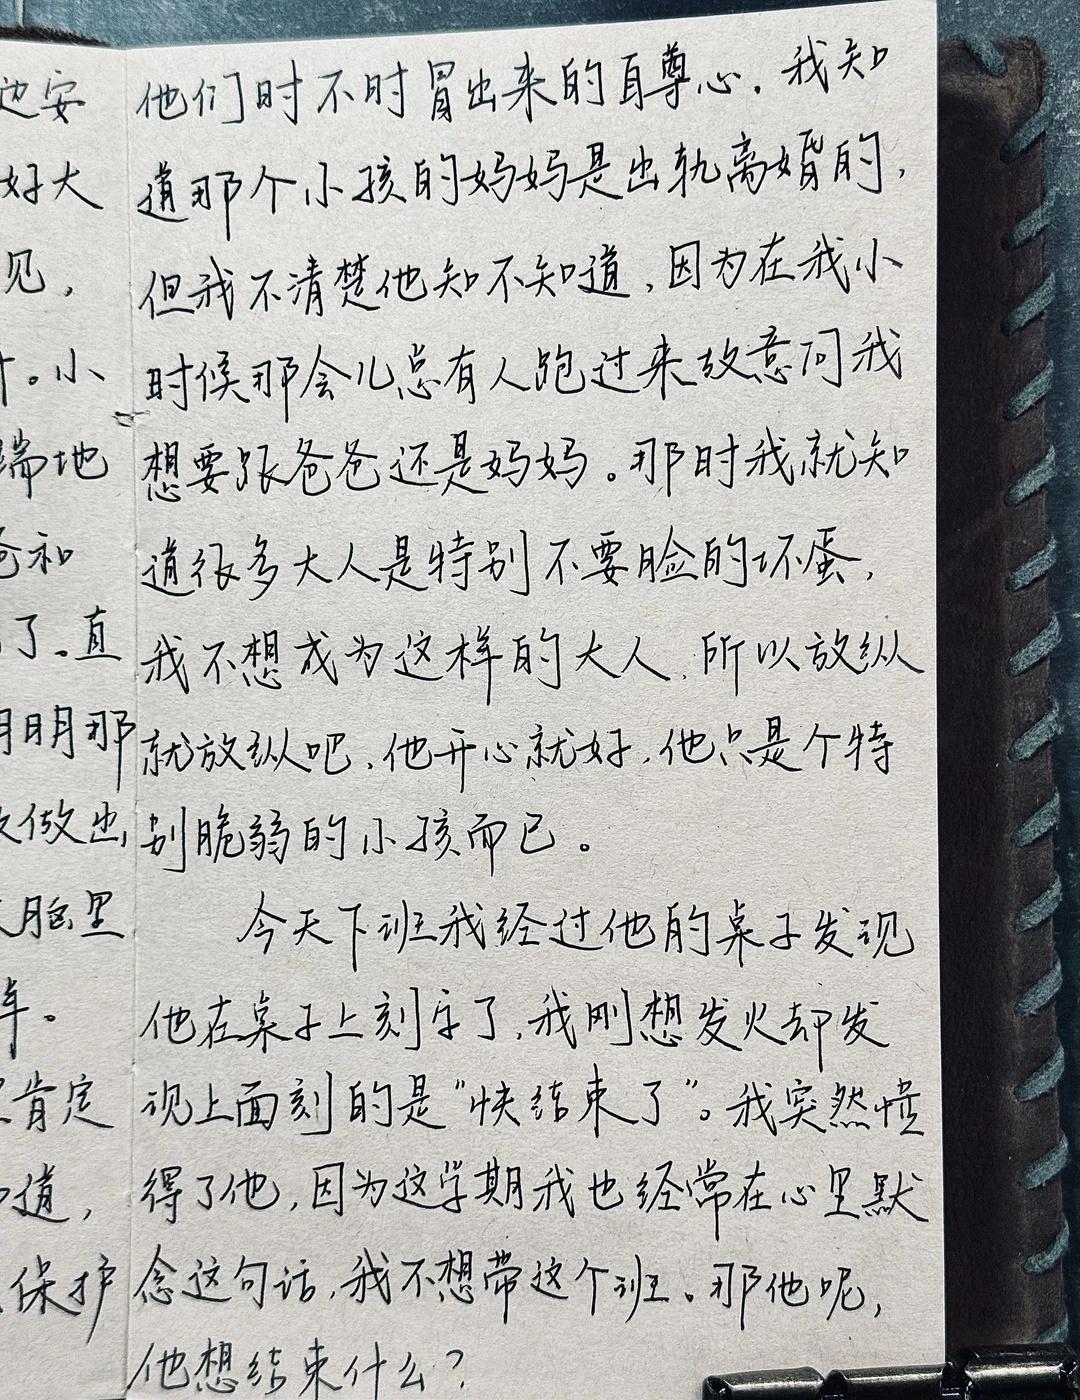 边安
好大
见，
。小
端地
爸和
了。直
明明那
做出
脑里
年。
肯定
道，
保护
他们时不时冒出来的自尊心。我知
道那个小孩的妈妈是出轨离婚的，
但我不清楚他知不知道，因为在我小
时候那会儿总有人跑过来故意问我
想要跟爸爸还是妈妈。那时我就知
道很多大人是特别不要脸的坏蛋，
我不想成为这样的大人，所以放纵
就放纵吧，他开心就好，他只是个特
别脆弱的小孩而已。
今天下班我经过他的桌子发现
他在桌子上刻字了，我刚想发火却发
现上面刻的是“快结束了”。我突然懂
得了他，因为这学期我也经常在心里默
念这句话，我不想带这个班。那他呢，
他想结束什么？